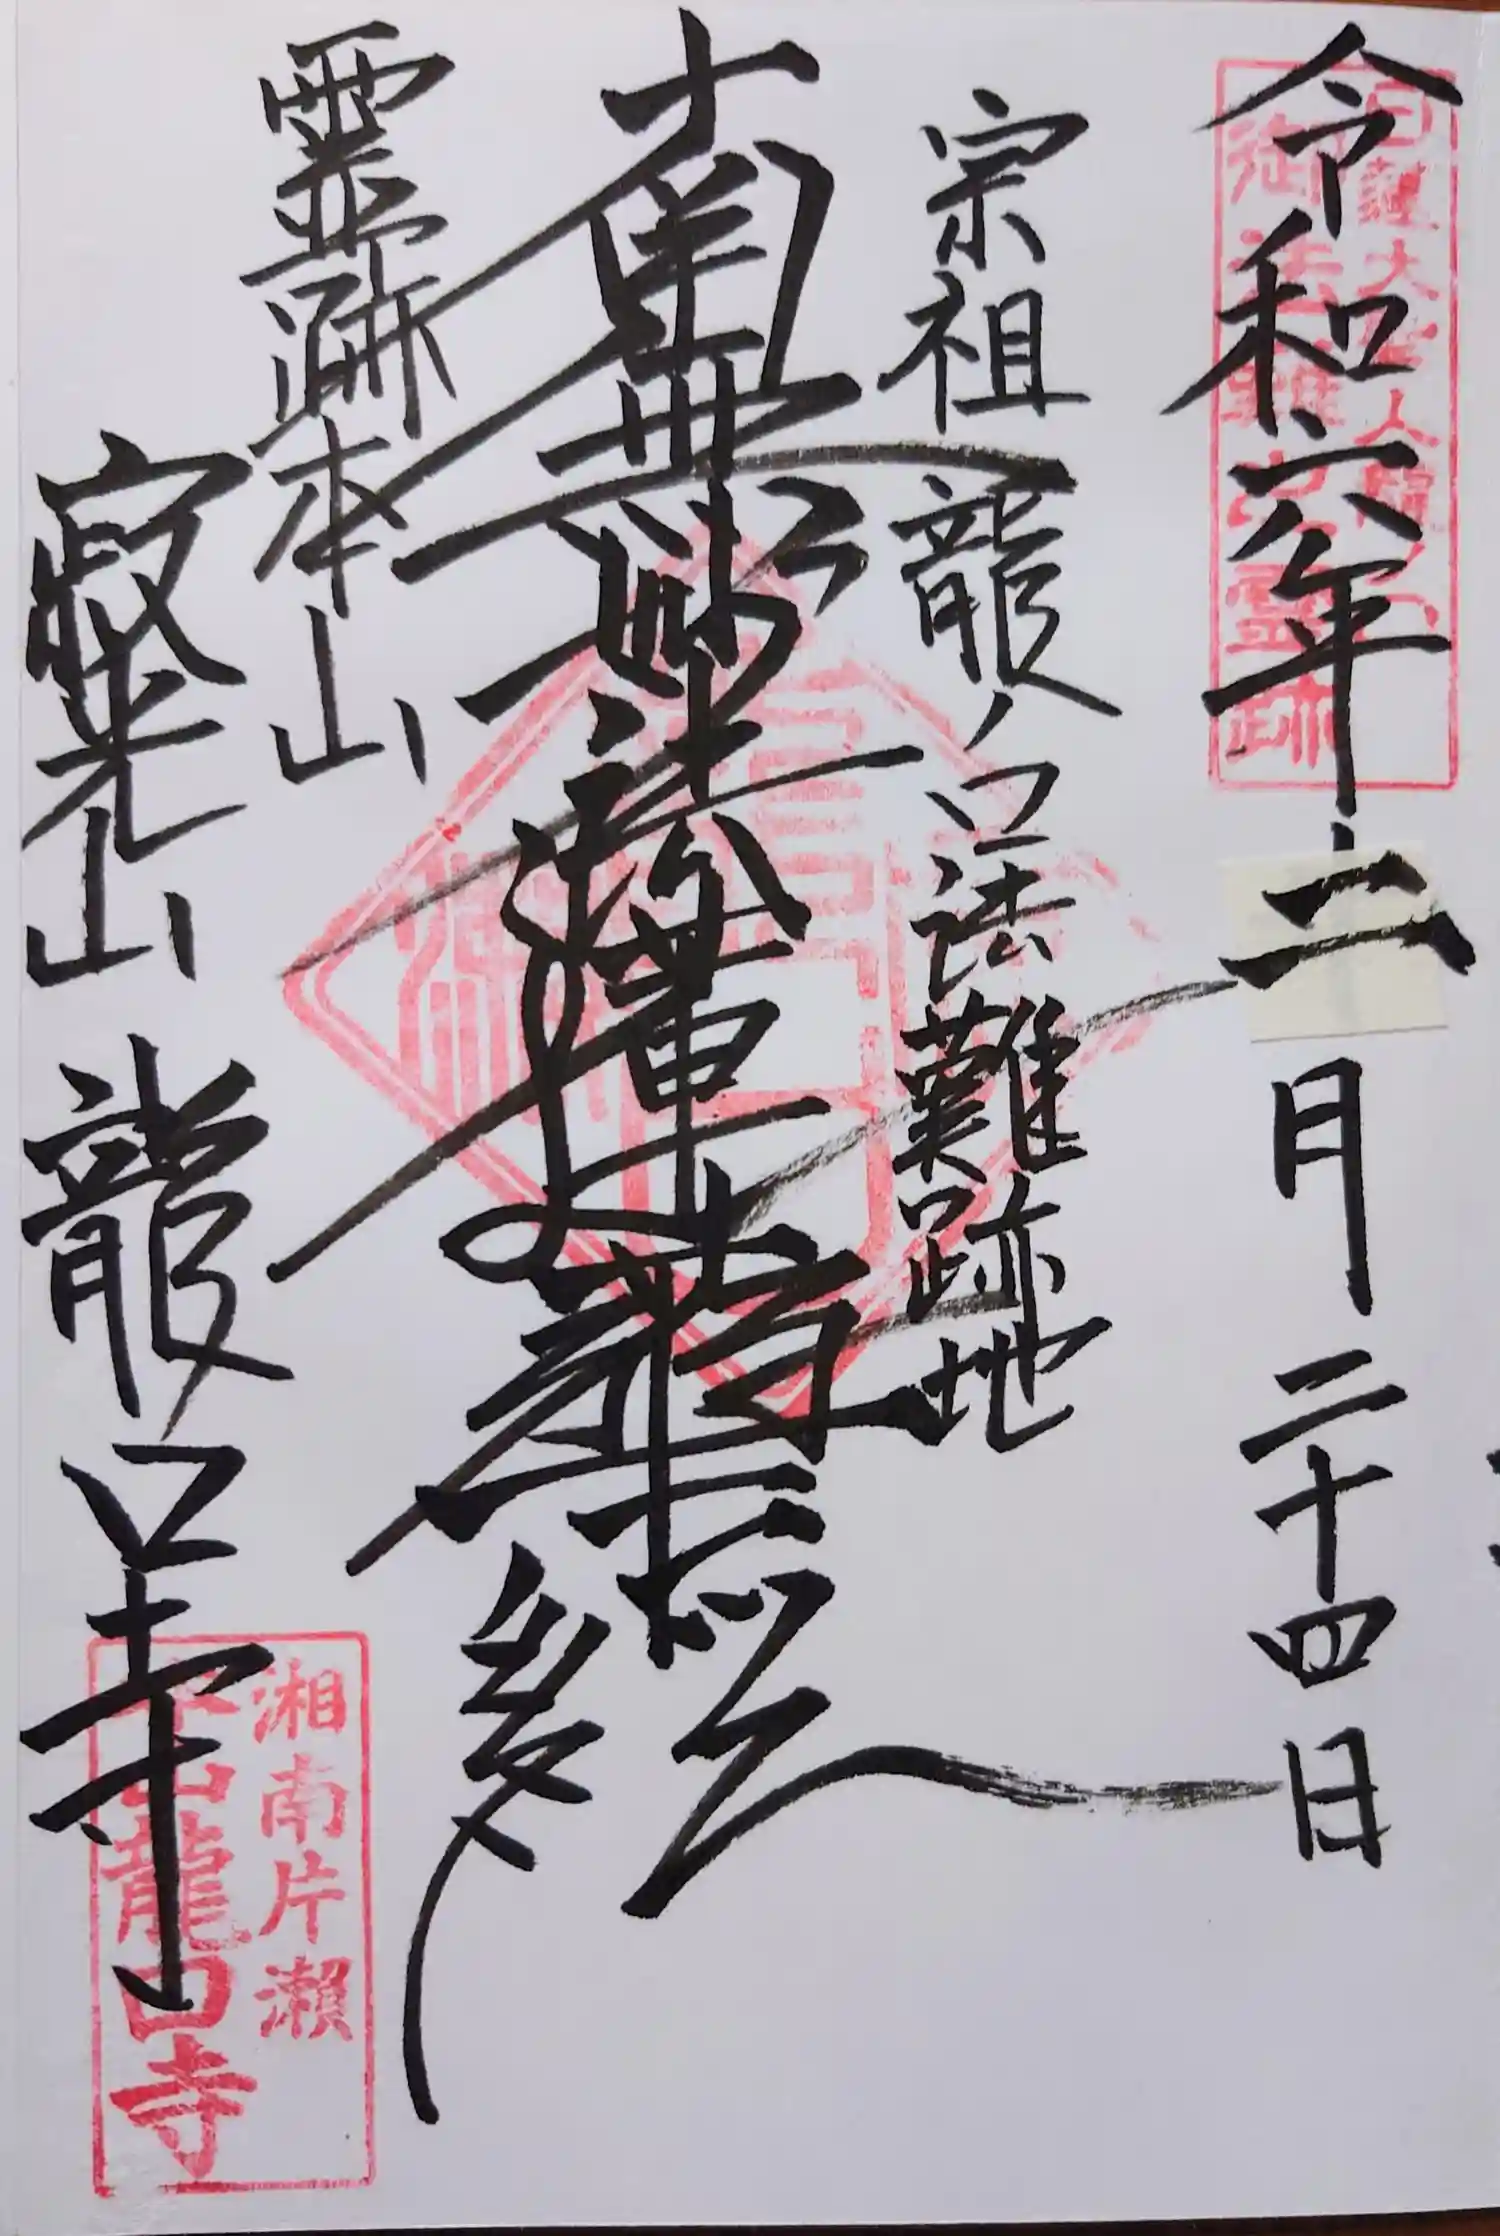 令和六年二月二十四日
日蓮大聖人龍ノ口
御法難霊跡
宗祖龍ノ口法難跡地
南無妙法蓮華経
霊跡本山
寂光山龍口寺
湘南片瀬
本山龍口寺